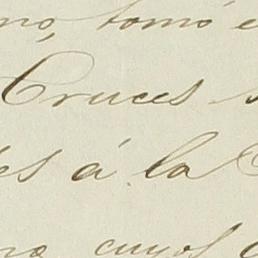 no, tomó e
Cruces
és á la
no cuyos